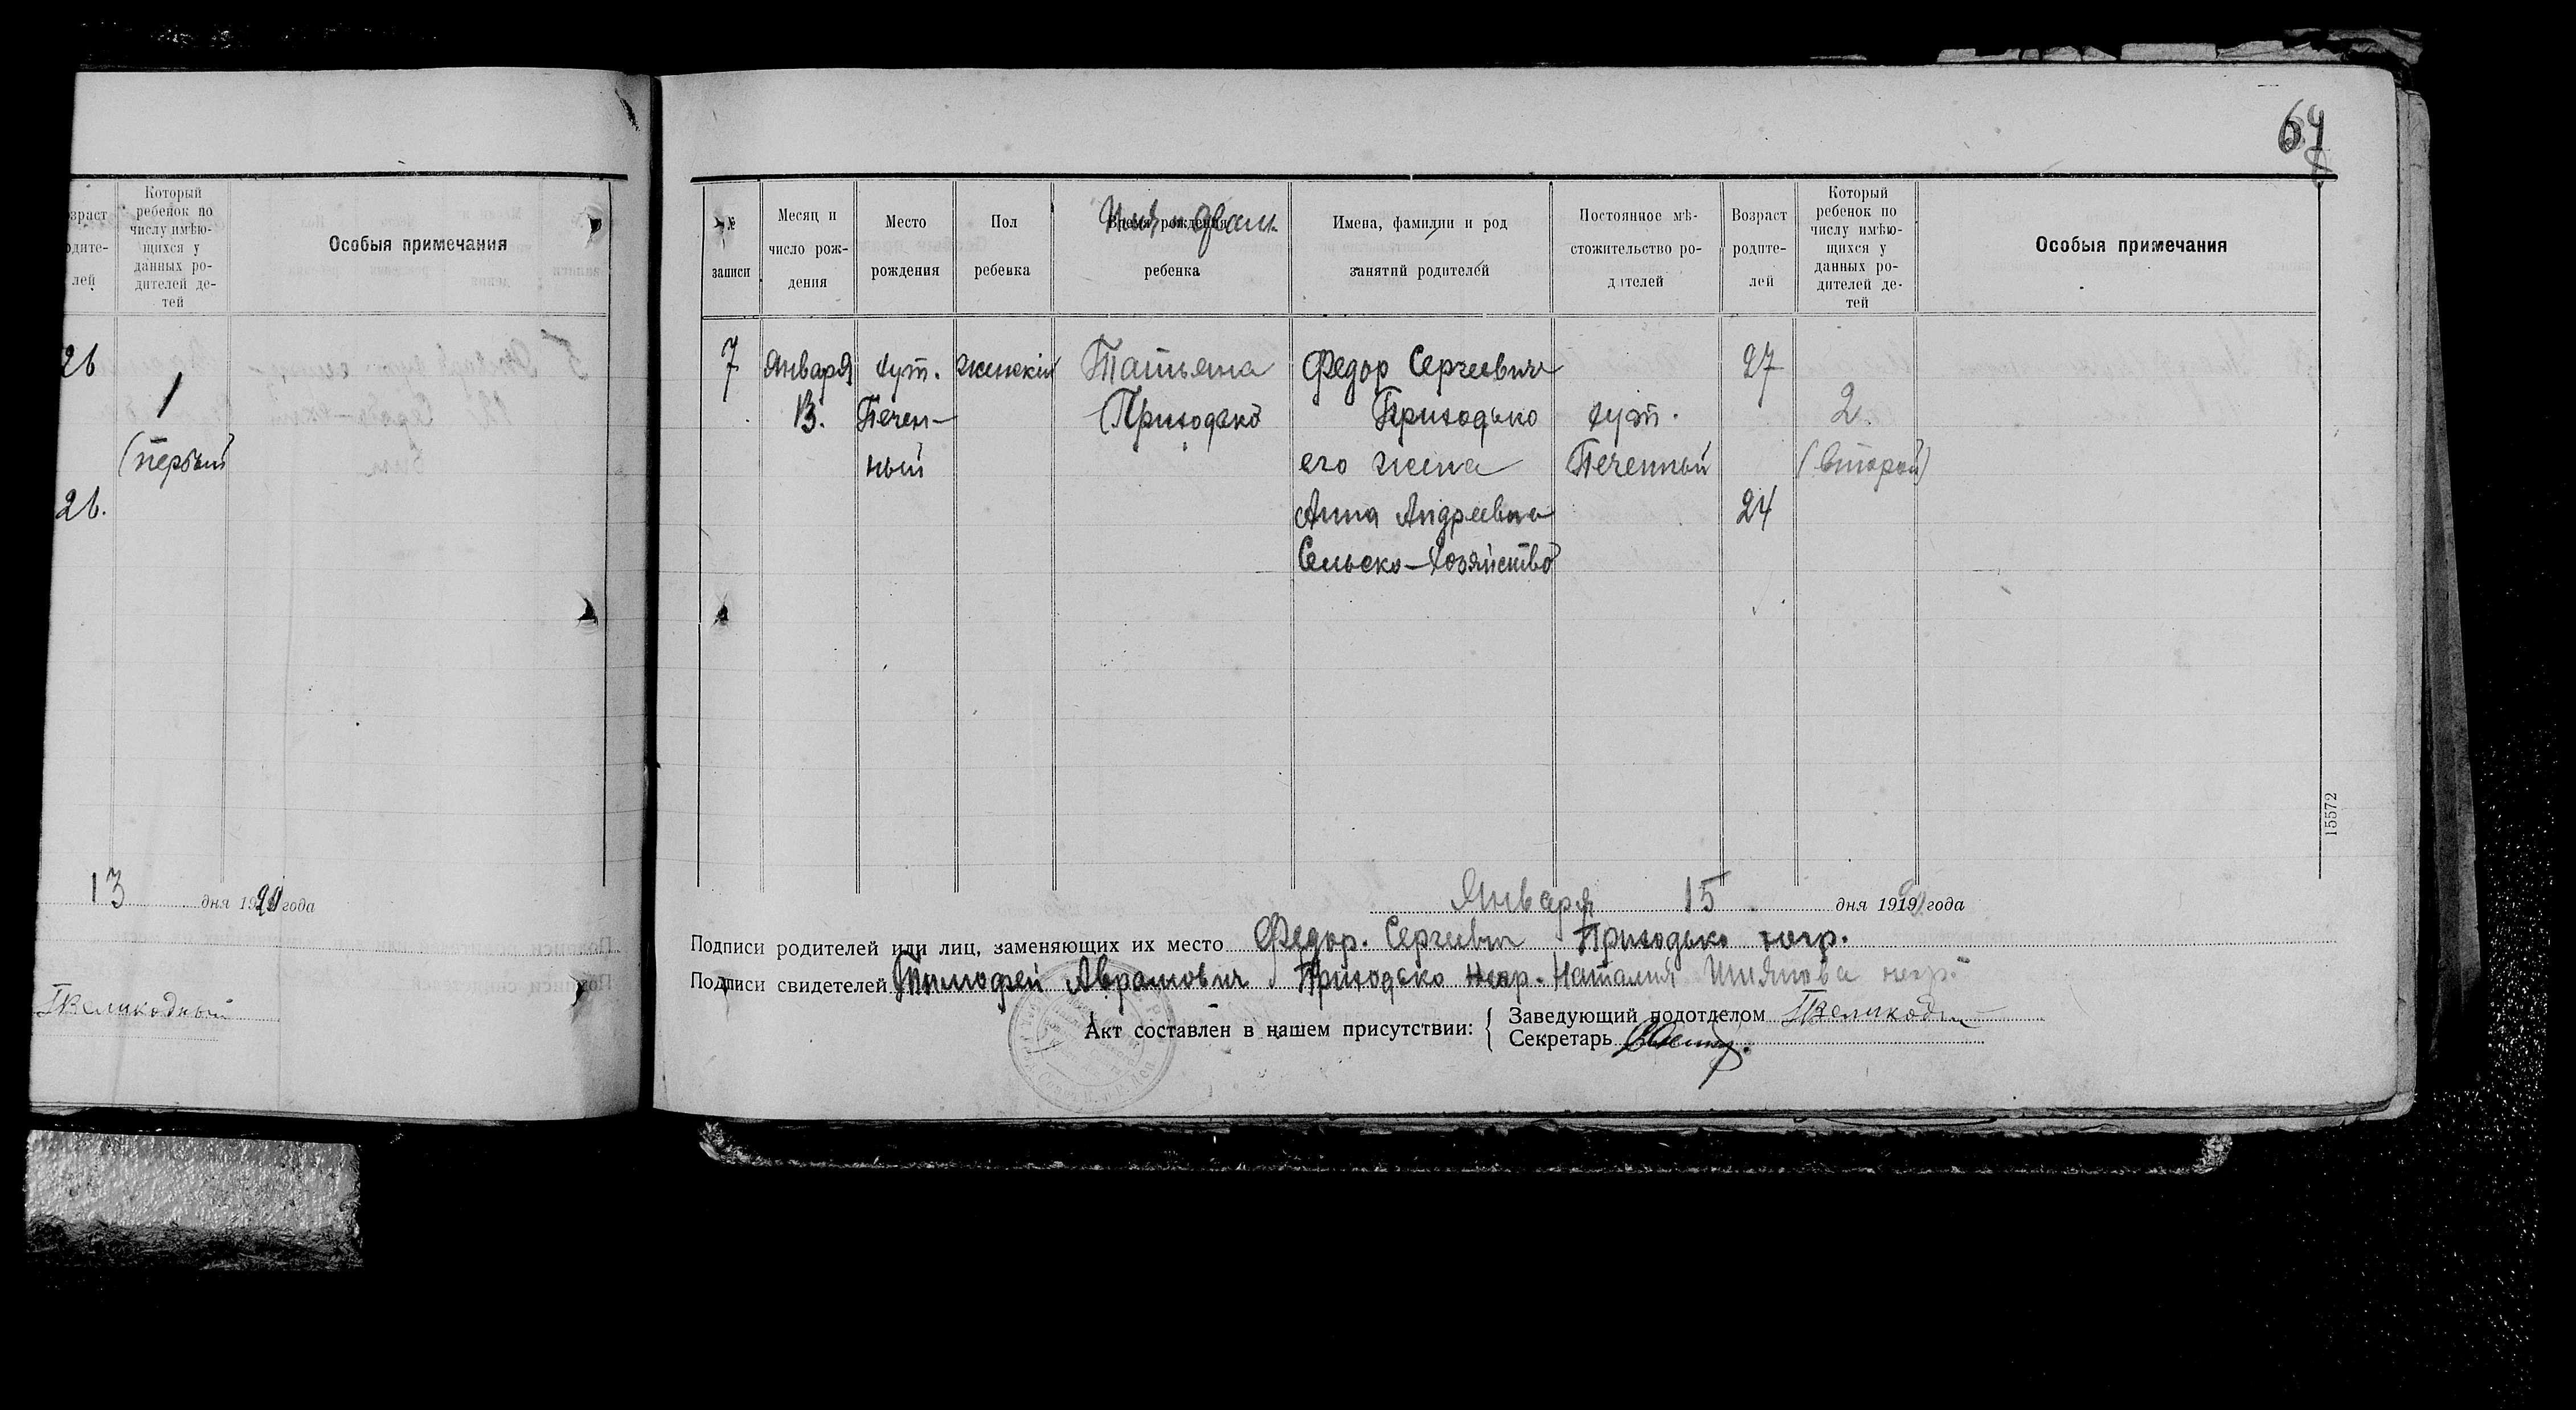 зраст
одите-
лей
Который
ребенок по
числу имѣю-
щихся у
данных ро-
дителей де-
тей
Особыя примечания
26
1
(первый
26.
13 дня 1920 года
Великодный
64
№
записи
Месяц и
число рож-
дения
Место
рождения
Пол
ребенка
Имя и фам.
Время рождения
ребенка
Имена, фамилии и род
занятий родителей
Постоянное мѣ-
стожительство ро-
дителей
Возраст
родите-
лей
Который
ребенок по
числу имѣю-
щихся у
данных ро-
дителей де-
тей
Особыя примечания
7
Января
13.
хут.
Печен-
ный
женскій
Татьяна
Приходько
Федор Сергеевич
Приходько
его жена
Анна Андреевна
Сельско-хозяйство
хут.
Печенный
27
24
2.
(второй)
15572
Января 15 дня 1919 года
Подписи родителей или лиц, заменяющих их место Федор. Сергеевич Приходько негр.
Подписи свидетелей Тимофей Аврамович Приходько негр. Наталия негр.
Акт составлен в нашем присутствии:
Заведующий подотделом Великодн
Секретарь